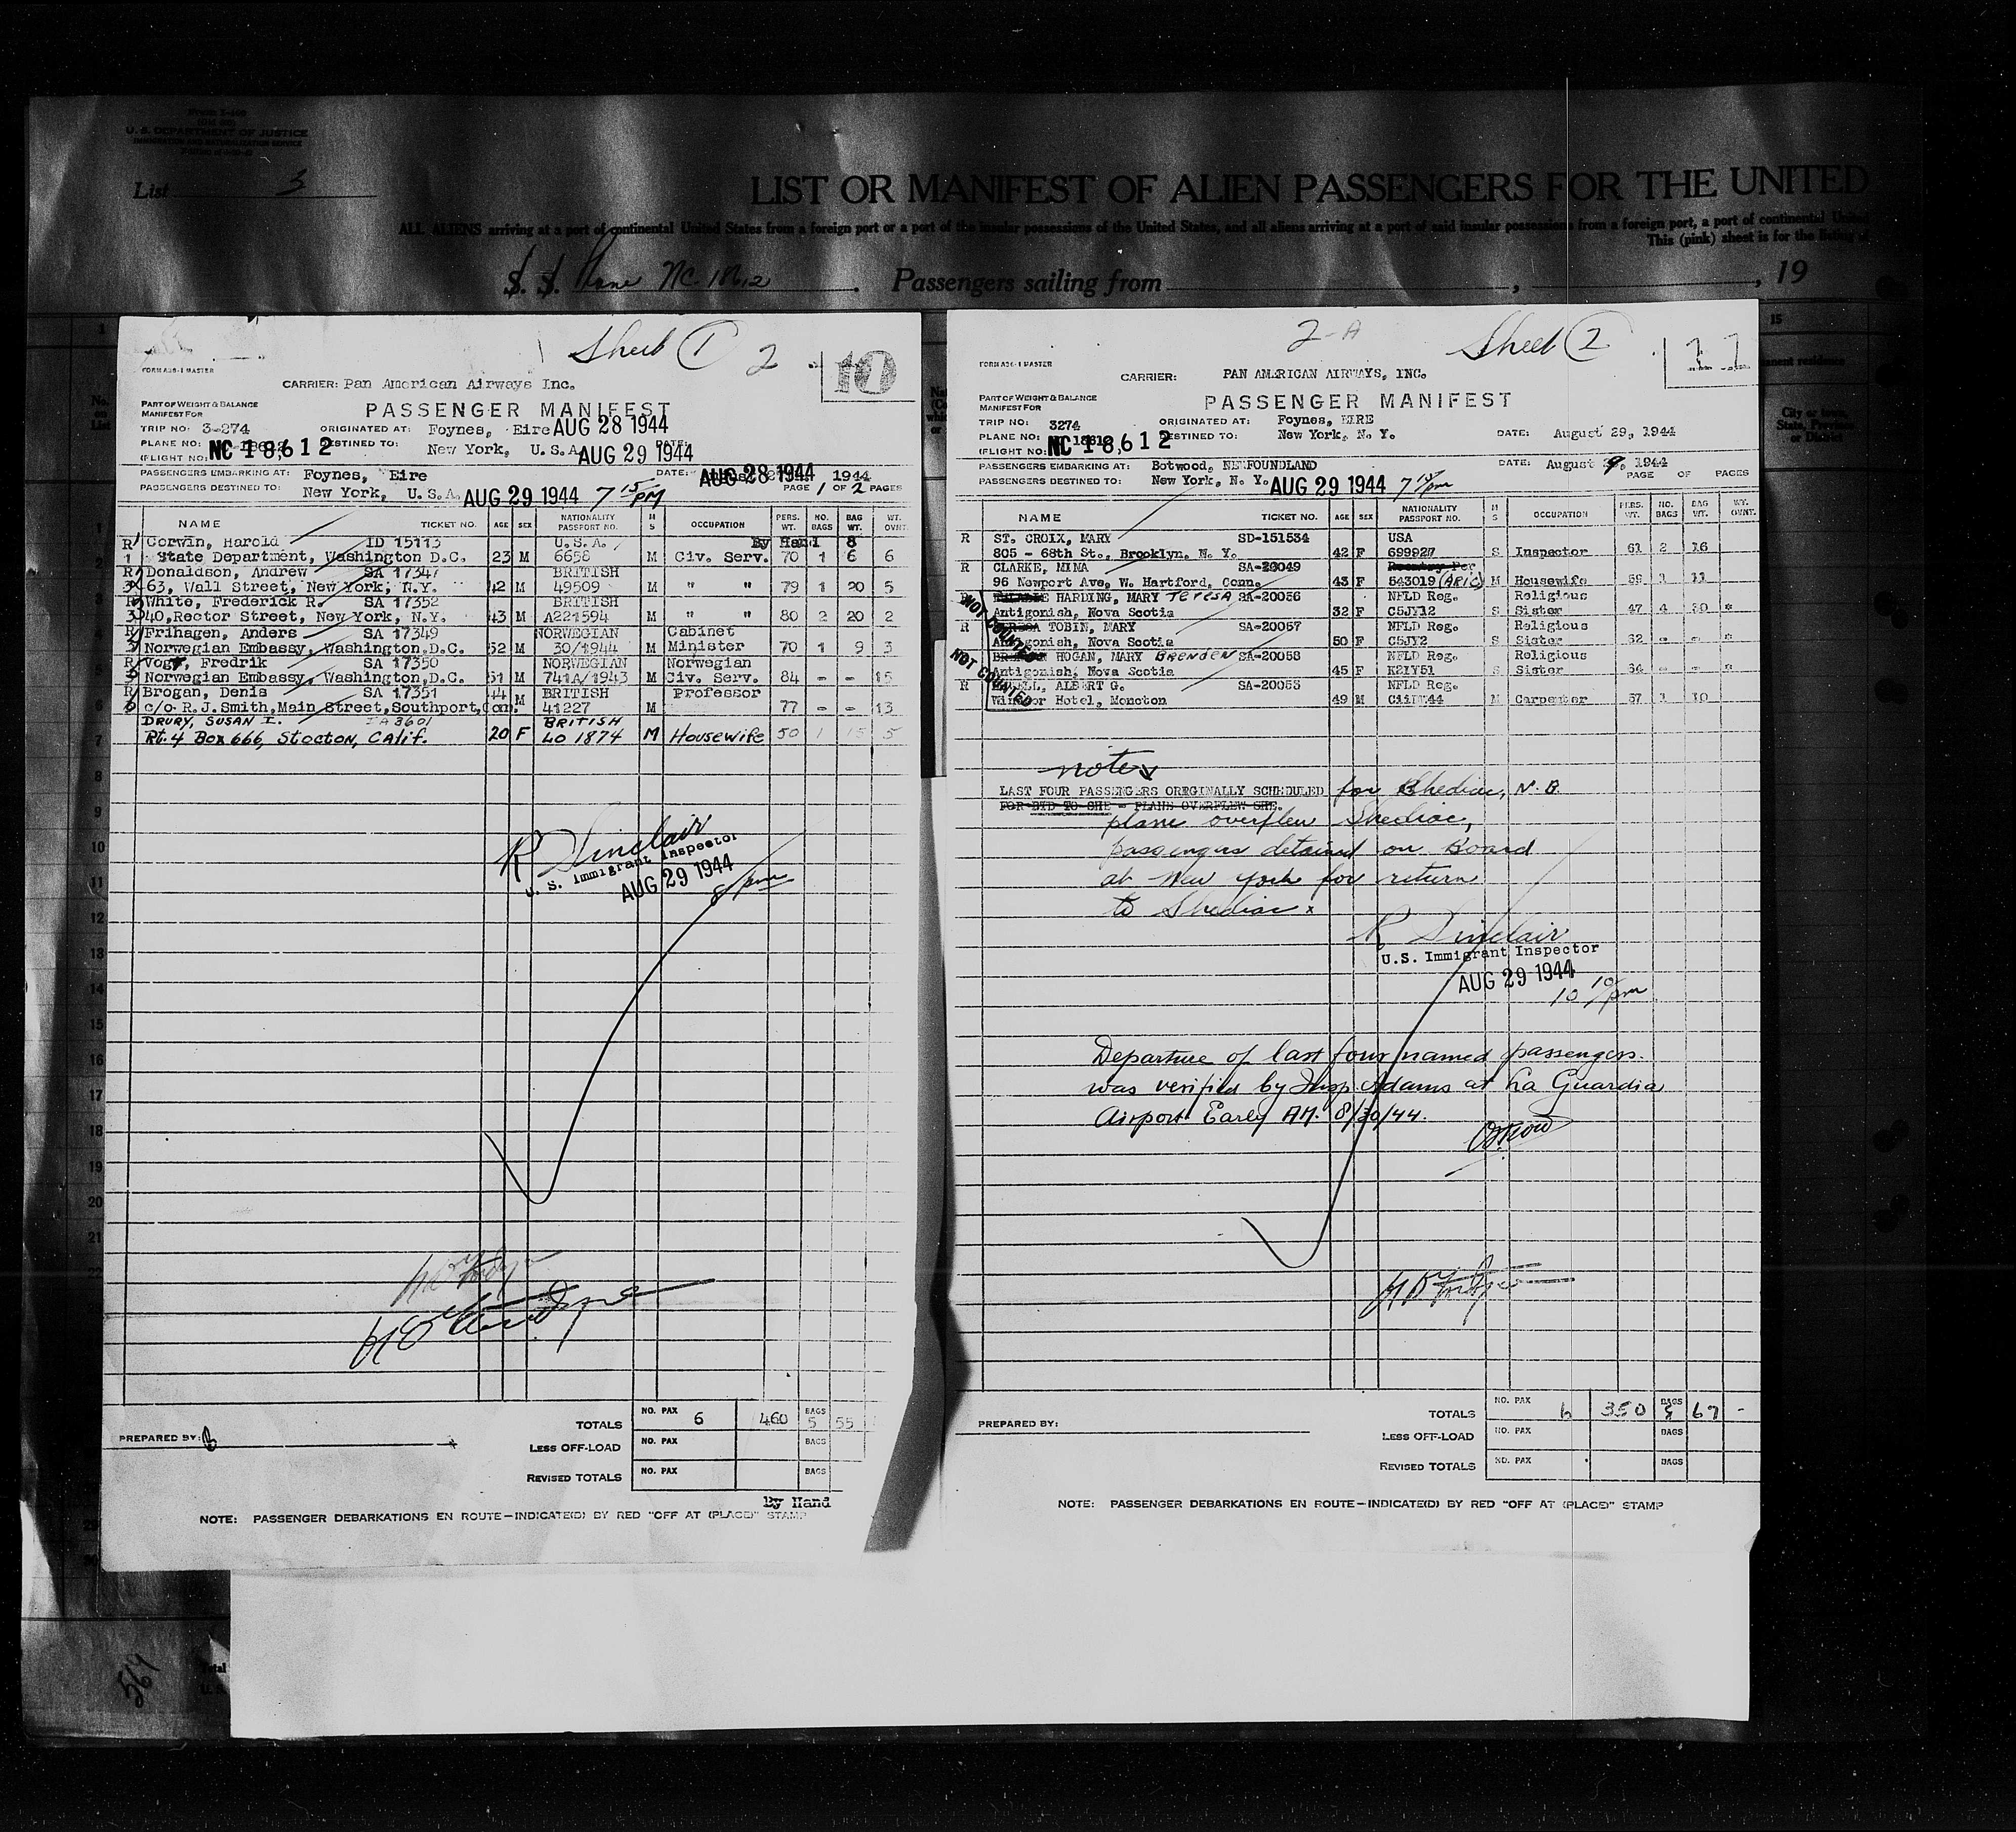 FORM I-460
U. S. DEPARTMENT OF JUSTICE
IMMIGRATION AND NATURALIZATION SERVICE
List 3
LIST OR MANIFEST OF ALIEN PASSENGERS FOR THE UNITED
ALL ALIENS arriving at a port of continental United States from a foreign port or a port of the insular possessions of the United States, and all aliens arriving at a port of said insular possessions from a foreign port, a port of continental United
This (pink) sheet is for the listing of
S. S. Plane NC. 18612 . Passengers sailing from , , 19
Sheet 1 2 10
FORM A36-1 MASTER
CARRIER: Pan American Airways Inc.
PART OF WEIGHT & BALANCE
MANIFEST FOR
PASSENGER MANIFEST
TRIP NO: 3-274 ORIGINATED AT: Foynes, Eire AUG 28 1944
PLANE NO: NC 18,612 DESTINED TO: New York, U.S.A. AUG 29 1944 DATE:
(FLIGHT NO:
PASSENGERS EMBARKING AT: Foynes, Eire DATE: AUG 28 1944 1944
PASSENGERS DESTINED TO: New York, U.S.A. AUG 29 1944 7 15 PM PAGE 1 OF 2 PAGES
NAME TICKET NO. AGE SEX NATIONALITY PASSPORT NO. M S OCCUPATION PERS. WT. NO. BAGS BAG WT. WT. OVNT.
R Corwin, Harold ID 15113 U.S.A. By Hand 8
1 State Department, Washington D.C. 23 M 6658 M Civ. Serv. 70 1 6 6
R Donaldson, Andrew SA 17347 BRITISH
63, Wall Street, New York, N.Y. 42 M 49509 M " " 79 1 20 5
R White, Frederick R. SA 17352 BRITISH
3 40, Rector Street, New York, N.Y. 43 M A221594 M " " 80 2 20 2
R Frihagen, Anders SA 17349 NORWEGIAN Cabinet
Norwegian Embassy, Washington.D.C. 52 M 30/1944 M Minister 70 1 9 3
R Vogt, Fredrik SA 17350 NORWEGIAN Norwegian
Norwegian Embassy, Washington.D.C. 51 M 741A/1943 M Civ. Serv. 84 - - 15
R Brogan, Denis SA 17351 44 M BRITISH Professor
c/o R.J. Smith, Main Street, Southport, Con. 41227 M 77 - - 13
DRURY, SUSAN I. IA 3601 BRITISH
Rt. 4 Box 666, Stocton, Calif. 20 F LO 1874 M Housewife 50 1 15 5
R Sinclair
U. S. Immigrant Inspector
AUG 29 1944
8 pm
TOTALS NO. PAX 6 460 BAGS 5 55
PREPARED BY:
LESS OFF-LOAD NO. PAX BAGS
REVISED TOTALS NO. PAX BAGS
By Hand
NOTE: PASSENGER DEBARKATIONS EN ROUTE—INDICATE(D) BY RED "OFF AT (PLACE)" STAMP
564
2-A Sheet 2 11
FORM A36-1 MASTER
CARRIER: PAN AMERICAN AIRWAYS, INC.
PART OF WEIGHT & BALANCE
MANIFEST FOR
PASSENGER MANIFEST
TRIP NO: 3274 ORIGINATED AT: Foynes, EIRE
PLANE NO: NC 18,612 DESTINED TO: New York, N. Y. DATE: August 29, 1944
(FLIGHT NO:
PASSENGERS EMBARKING AT: Botwood, NEWFOUNDLAND DATE: August 9, 1944
PASSENGERS DESTINED TO: New York, N. Y. AUG 29 1944 7 15 pm PAGE OF PAGES
NAME TICKET NO. AGE SEX NATIONALITY PASSPORT NO. M S OCCUPATION PERS. WT. NO. BAGS BAG WT. WT. OVNT.
R ST. CROIX, MARY SD-151534 USA
805 - 68th St., Brooklyn, N. Y. 42 F 699927 S Inspector 61 2 16
R CLARKE, MINA SA-26049 Reentry Per
96 Newport Ave, W. Hartford, Conn. 43 F 543019 (ARIC) M Housewife 59 1 11
HARDING, MARY TERESA SA-20056 NFLD Reg. Religious
Antigonish, Nova Scotia 32 F C5JY12 S Sister 47 4 30 *
R TOBIN, MARY SA-20057 NFLD Reg. Religious
Antigonish, Nova Scotia 50 F C5JY2 S Sister 62 - - *
HOGAN, MARY BRENDEN SA-20058 NFLD Reg. Religious
Antigonish, Nova Scotia 45 F K2IY51 S Sister 64 - - *
R ALBERT G. SA-20053 NFLD Reg.
Windsor Hotel, Moncton 49 M M Carpenter 57 1 10
NOT COUNTED
NOT COUNTED
note
LAST FOUR PASSENGERS ORIGINALLY SCHEDULED for Shediac, N. B.
FOR BTD TO SHE - PLANE OVERFLEW SHE.
plane overflew Shediac,
passengers detained on board
at New York for return
to Shediac x
R Sinclair
U.S. Immigrant Inspector
AUG 29 1944
10 10 pm
Departure of last four named passengers
was verified by Insp. Adams at La Guardia
Airport Early AM. 8/30/44.
TOTALS NO. PAX 6 350 BAGS 8 67 -
PREPARED BY:
LESS OFF-LOAD NO. PAX BAGS
REVISED TOTALS NO. PAX BAGS
NOTE: PASSENGER DEBARKATIONS EN ROUTE—INDICATE(D) BY RED "OFF AT (PLACE)" STAMP